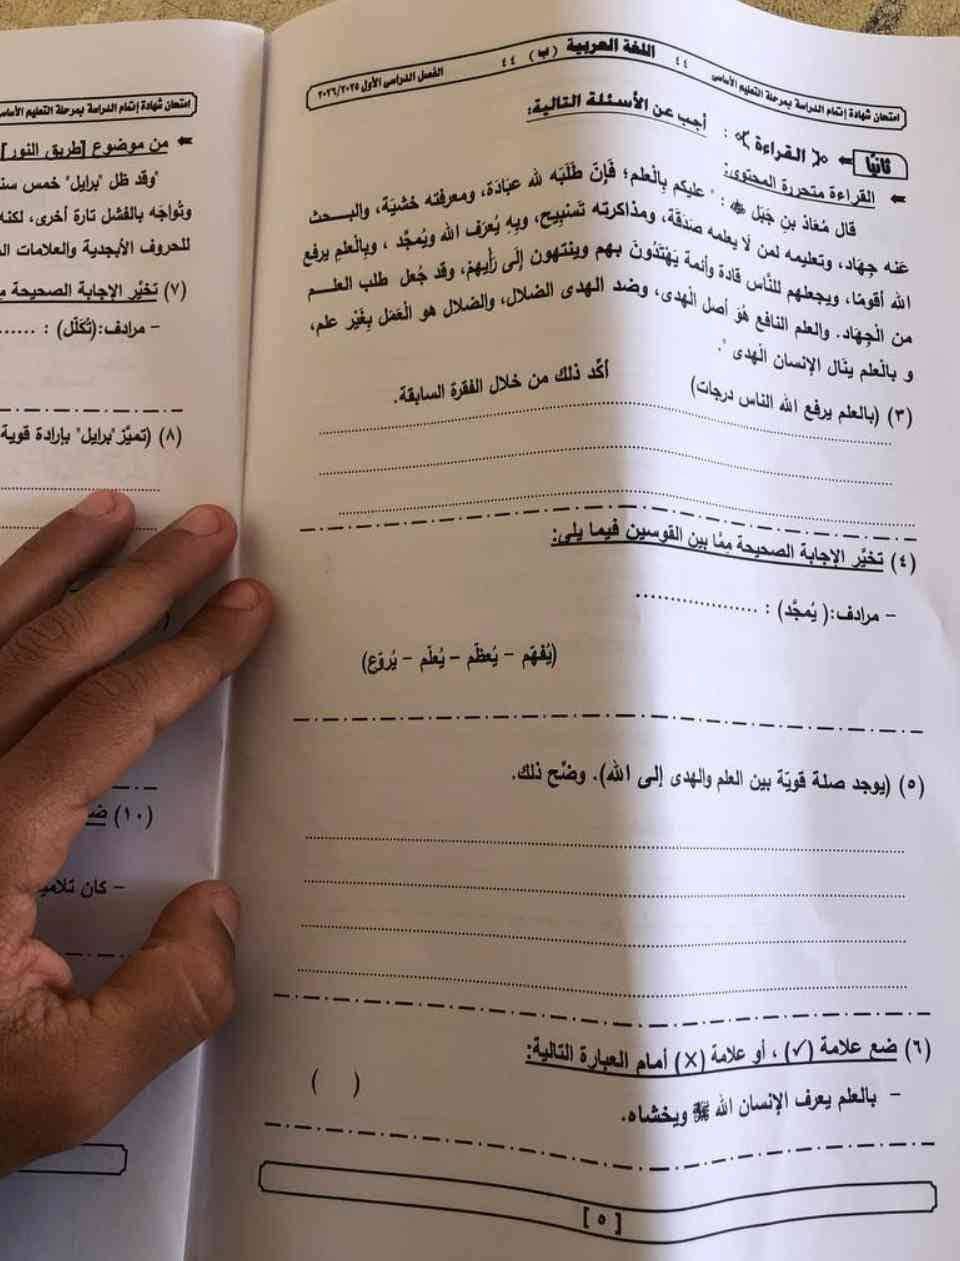 امتحان شهادة إتمام الدراسة بمرحلة التعليم الأساسى ٤٤ اللغة العربية (ب) ٤٤ الفصل الدراسى الأول ٢٠٢٦/٢٠٢٥
ثانيًا القراءة : أجب عن الأسئلة التالية:
القراءة متحررة المحتوى:
قال مُعَاذ بن جَبَل : " عليكم بِالْعلم؛ فَإِنّ طَلَبَه لله عبَادَة، ومعرفته خَشيَة، والبـــحث
عَنه جِهَاد، وتعليمه لمن لَا يعلمه صَدَقَة، ومذاكرته تَسْبِيح، وبِهِ يُعرَف الله ويُمجَّد ، وبالْعلمِ يرفع
الله أقومًا، ويجعلهم للنَّاس قادة وأئمة يَهْتَدُونَ بهم وينتهون إلَى رَأْيِهمْ، وقد جُعل طلب العلـــم
من الْجِهَاد. والعلم النافع هُوَ أصل الْهدى، وضد الهدى الضلال، والضلال هو الْعَمَل بِغَيْر علم،
و بالْعلم ينَال الإنسان الْهدى ".
(٣) (بالعلم يرفع الله الناس درجات) أكّد ذلك من خلال الفقرة السابقة.
(٤) تخيَّر الإجابة الصحيحة مِمَّا بين القوسين فيما يلى:
– مرادف:( يُمجَّد) : ..................
(يُفَهّم – يُعظّم – يُعلّم – يُروّع)
(٥) (يوجد صلة قويّة بين العلم والهدى إلى الله). وضّح ذلك.
(٦) ضع علامة (✓) ، أو علامة (✗) أمام العبارة التالية:
– بالعلم يعرف الإنسان الله ﷻ ويخشاه. ( )
[ ٥ ]
امتحان شهادة إتمام الدراسة بمرحلة التعليم
من موضوع [طريق النور]
"وقد ظل "برايل" خمس
وتُواجَه بالفشل تارة أخرى، لكنه
للحروف الأبجدية والعلامات
(٧) تخيَّر الإجابة الصحيحة
– مرادف:(تُكَلّل) : ......
(٨) (تميَّز "برايل" بإرادة قوية
(١٠)
– كان